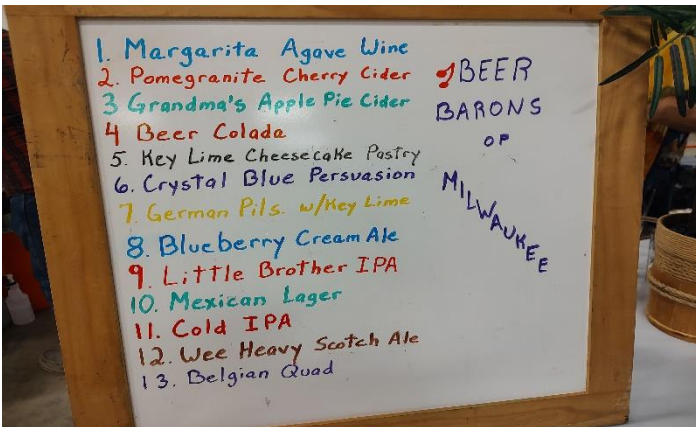 1. Margarita Agave Wine
2. Pomegranite Cherry Cider
3 Grandma's Apple Pie Cider
4 Beer Colada
5. Key Lime Cheesecake Pastry
6. Crystal Blue Persuasion
7. German Pils. w/Key Lime
8. Blueberry Cream Ale
9. Little Brother IPA
10. Mexican Lager
11. Cold IPA
12. Wee Heavy Scotch Ale
13. Belgian Quad
BEER
BARONS
OF
MILWAUKEE